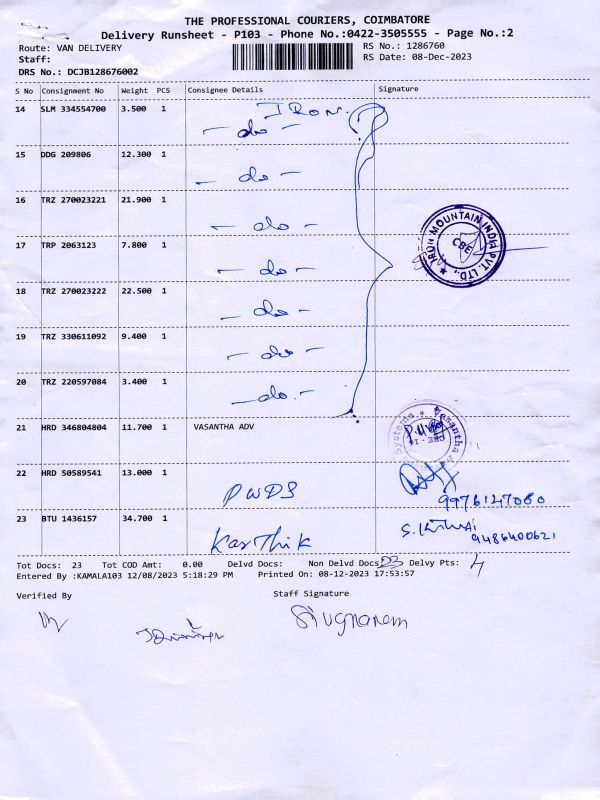 THE PROFESSIONAL COURIERS, COIMBATORE
Delivery Runsheet - P103 - Phone No.:0422-3505555 - Page No.:2
Route: VAN DELIVERY
RS No.: 1286760
Staff:
RS Date: 08-Dec-2023
DRS No.: DCJB128676002
S No Consignment No Weight PCS Consignee Details Signature
14 SLM 334554700 3.500 1 IRON.
- do -
15 DDG 209806 12.300 1 - do -
16 TRZ 270023221 21.900 1 - do -
17 TRP 2063123 7.800 1 - do -
IRON MOUNTAIN INDIA PVT. LTD.,
CBE
18 TRZ 270023222 22.500 1 - do -
19 TRZ 330611092 9.400 1 - do -
20 TRZ 220597084 3.400 1 - do -
21 HRD 346804804 11.700 1 VASANTHA ADV
Vasantha
Systems
22 HRD 50589541 13.000 1 PWDS
9976127080
23 BTU 1436157 34.700 1 Karthik
9486400621
Tot Docs: 23 Tot COD Amt: 0.00 Delvd Docs: Non Delvd Docs: 23 Delvy Pts: 4
Entered By :KAMALA103 12/08/2023 5:18:29 PM Printed On: 08-12-2023 17:53:57
Verified By Staff Signature